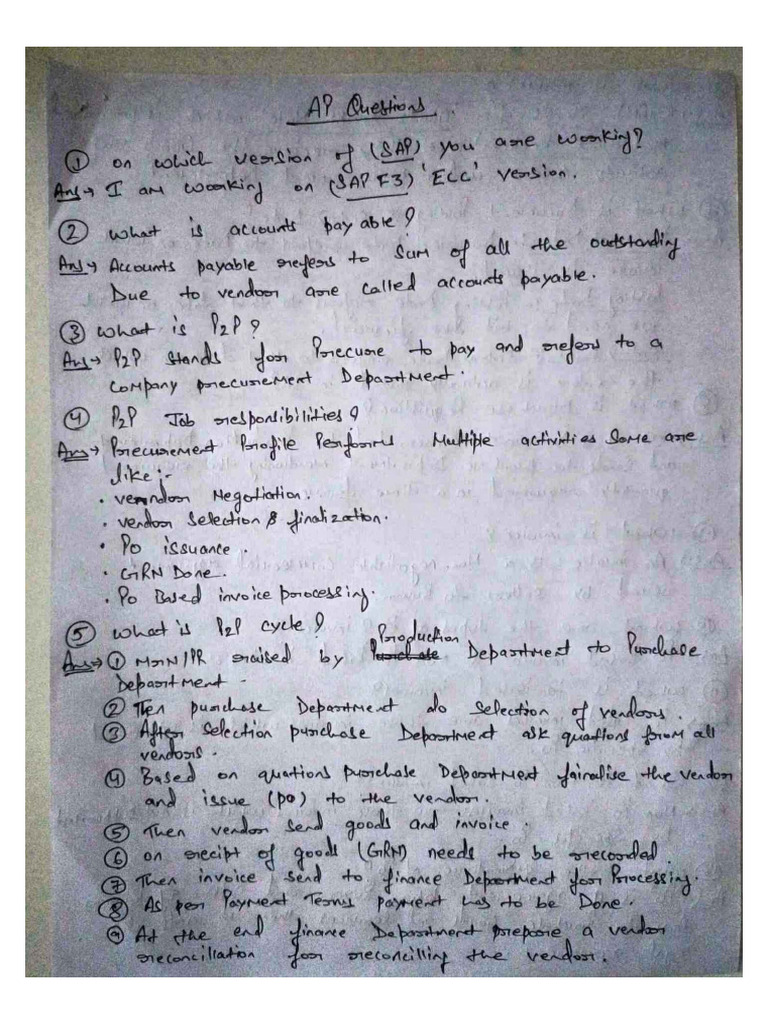 AP Questions.
① on which version of (SAP) you are working?
Ans→ I am working on (SAP F3) 'ECC' version.
② what is accounts payable?
Ans→ Accounts payable refers to sum of all the outstanding
Due to vendor are called accounts payable.
③ what is P2P?
Ans→ P2P stands for Precure to pay and refers to a
company precurement Department.
④ P2P Job responsibilities?
Ans→ Precurement Profile Performs Multiple activities Some are
like :-
• vendor Negotiation.
• vendor selection & finalization.
• PO issuance.
• GRN Done.
• Po Based invoice processing.
⑤ what is P2P cycle?
Production
Ans→ ① MRN/PR raised by Purchase Department to Purchase
Department.
② Then purchase Department do selection of vendors.
③ After selection purchase Department ask quations from all
vendors.
④ Based on quations purchase Department fainalise the vendor
and issue (po) to the vendor.
⑤ Then vendor send goods and invoice.
⑥ on receipt of goods (GRN) needs to be recorded.
⑦ Then invoice send to finance Department for Processing.
⑧ As per Payment Terms payment has to be Done.
⑨ At the end finance Department prepare a vendor
reconcillation for reconcilling the vendor.